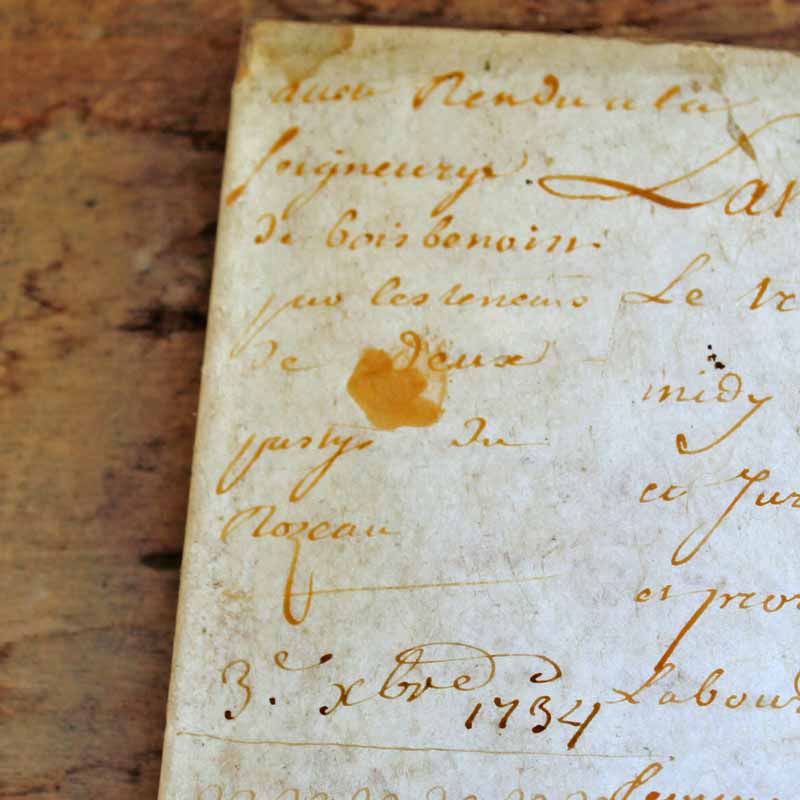 aueu Rendu a la
seigneurye
de boisbenoist
par les teneurs
de deux
partys du
Rozeau
3.e xbre 1734
Lan
Le
midy
et Jur
et pro
Labour